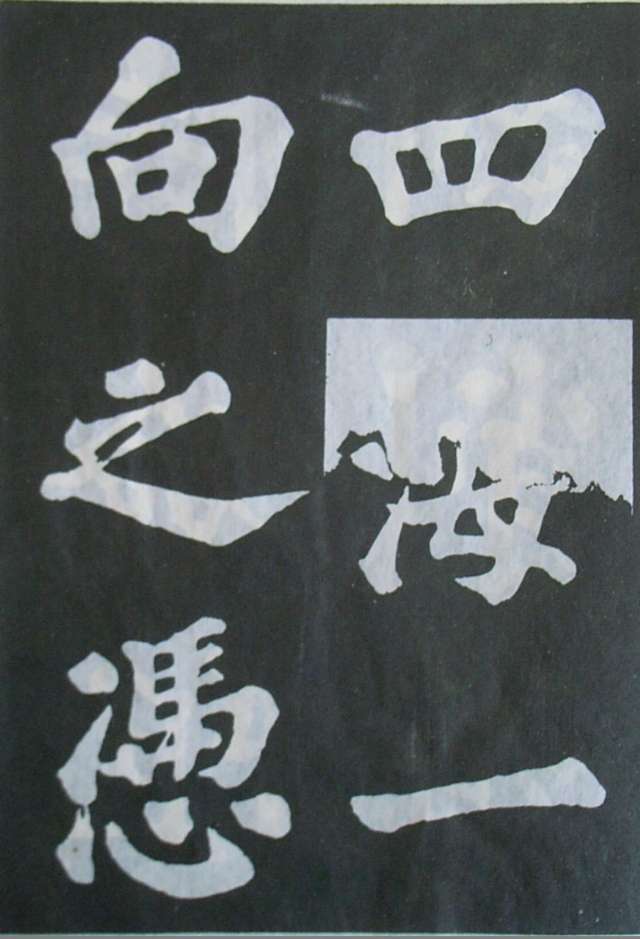 四海一
向之憑